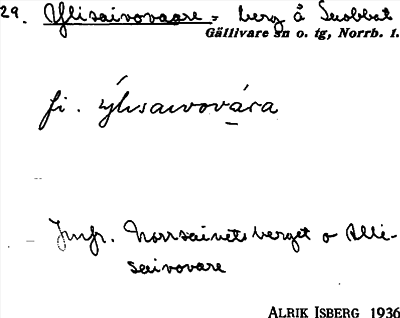 29. Ylisaivovaare = berg å Snobbat
Gällivare sn o. tg, Norrb. l.
fi. ýlisaivovára
Jmfr. Norrsaivetsberget o Alli-
saivovare
ALRIK ISBERG 1936